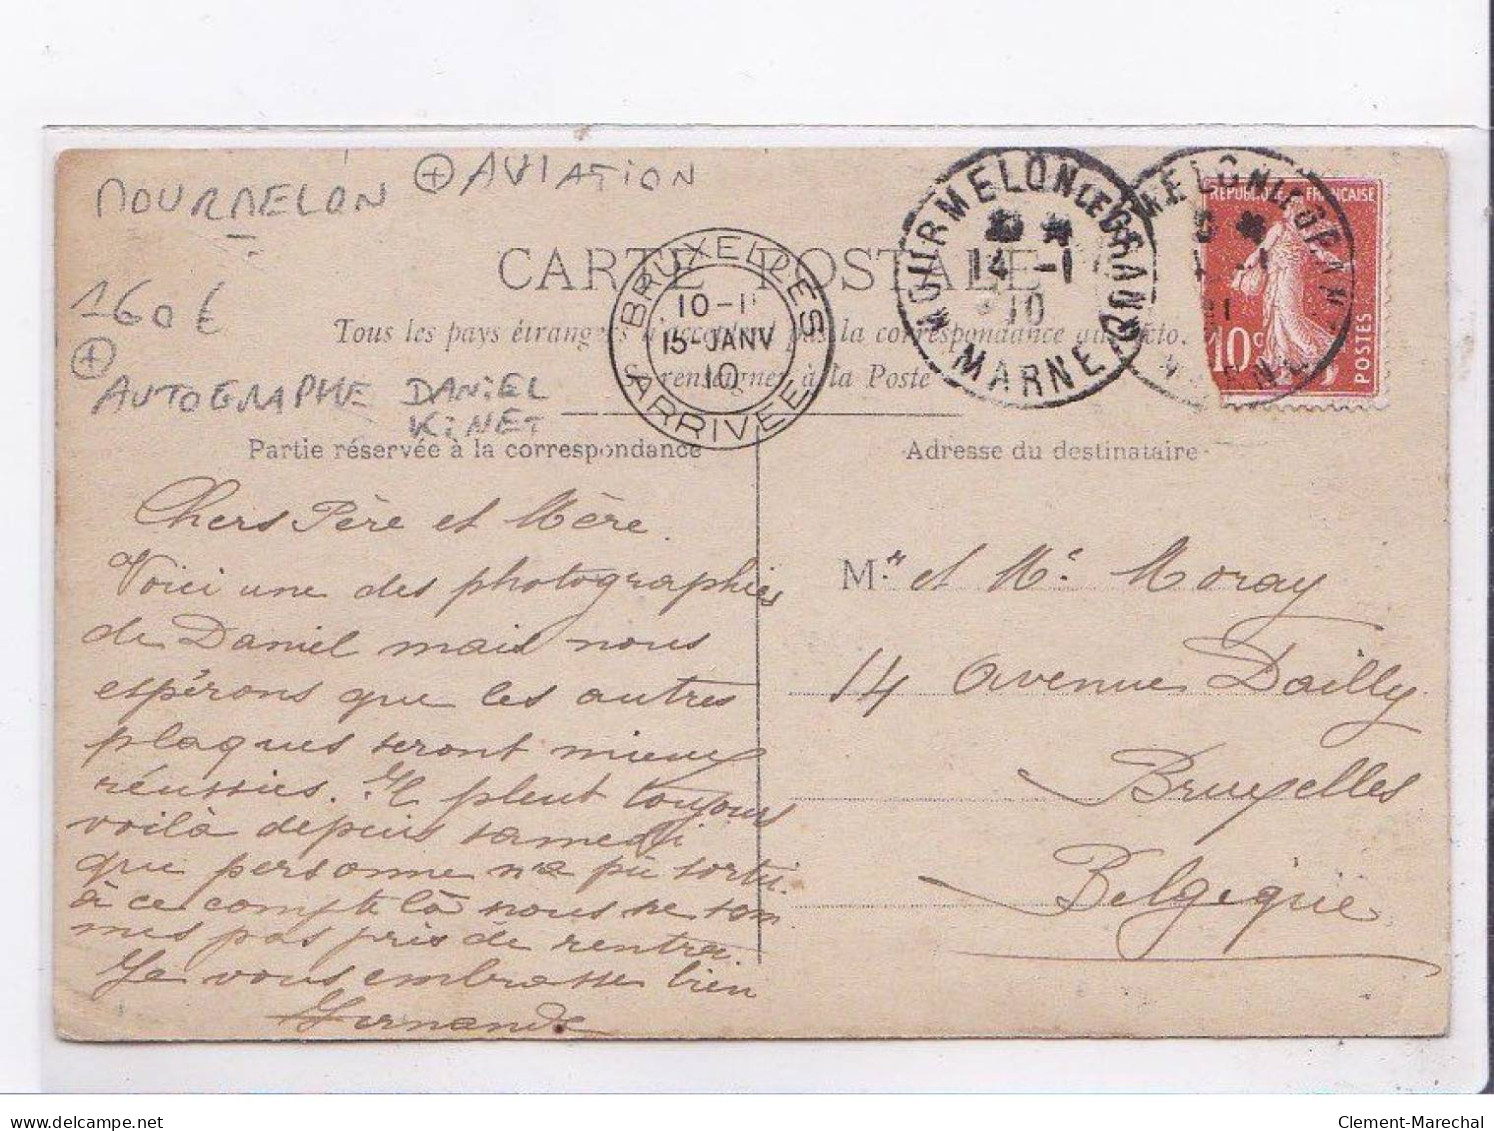 MOURMELON + AVIATION
160€
+
AUTOGRAPHE DANIEL
KINET
CARTE POSTALE
Tous les pays étrangers n'acceptent pas la correspondance au recto.
Se renseigner à la Poste
Partie réservée à la correspondance
Adresse du destinataire
BRUXELLES
10-11
15-JANV
10
ARRIVEE
MOURMELON LE GRAND
14 -1
10
MARNE
MELON LE GRAN
REPUBLIQUE FRANÇAISE
10c
POSTES
Chers Père et Mère.
Voici une des photographies
de Daniel mais nous
espérons que les autres
plaques seront mieux
réussies. Il pleut toujours
voilà depuis samedi
que personne n'a pu sortir.
à ce compte là nous ne som
mes pas près de rentrer.
Je vous embrasse bien
Fernande
Mr et Me Moray
14 avenue Dailly
Bruxelles
Belgique
Clement-Marechal